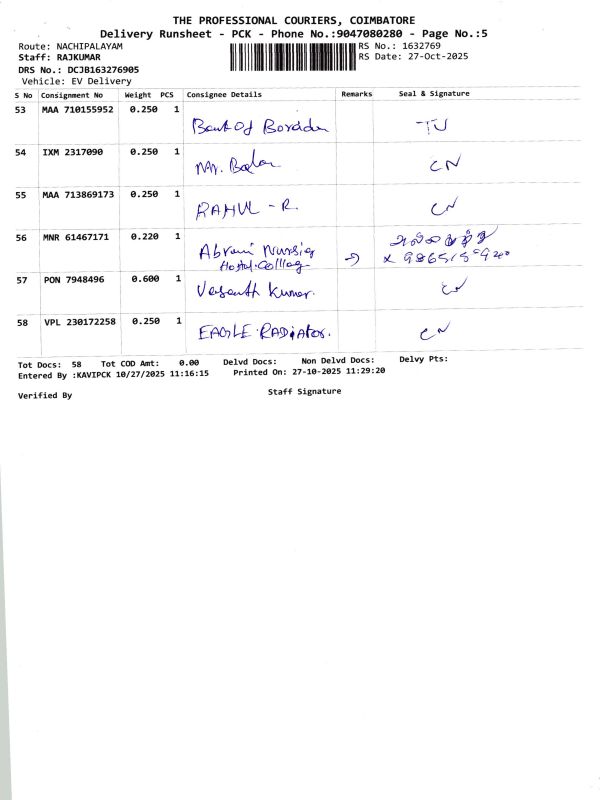 THE PROFESSIONAL COURIERS, COIMBATORE
Delivery Runsheet - PCK - Phone No.:9047080280 - Page No.:5
Route: NACHIPALAYAM RS No.: 1632769
Staff: RAJKUMAR RS Date: 27-Oct-2025
DRS No.: DCJB163276905
Vehicle: EV Delivery
S No Consignment No Weight PCS Consignee Details Remarks Seal & Signature
53 MAA 710155952 0.250 1 Bank Of TU
54 IXM 2317090 0.250 1 Mr. CN
55 MAA 713869173 0.250 1 RAHUL - R. CN
56 MNR 61467171 0.220 1 Nursig
Hostel
57 PON 7948496 0.600 1 Vasanth Kumar. CN
58 VPL 230172258 0.250 1 EAGLE RADiAtoR. CN
Tot Docs: 58 Tot COD Amt: 0.00 Delvd Docs: Non Delvd Docs: Delvy Pts:
Entered By :KAVIPCK 10/27/2025 11:16:15 Printed On: 27-10-2025 11:29:20
Verified By Staff Signature